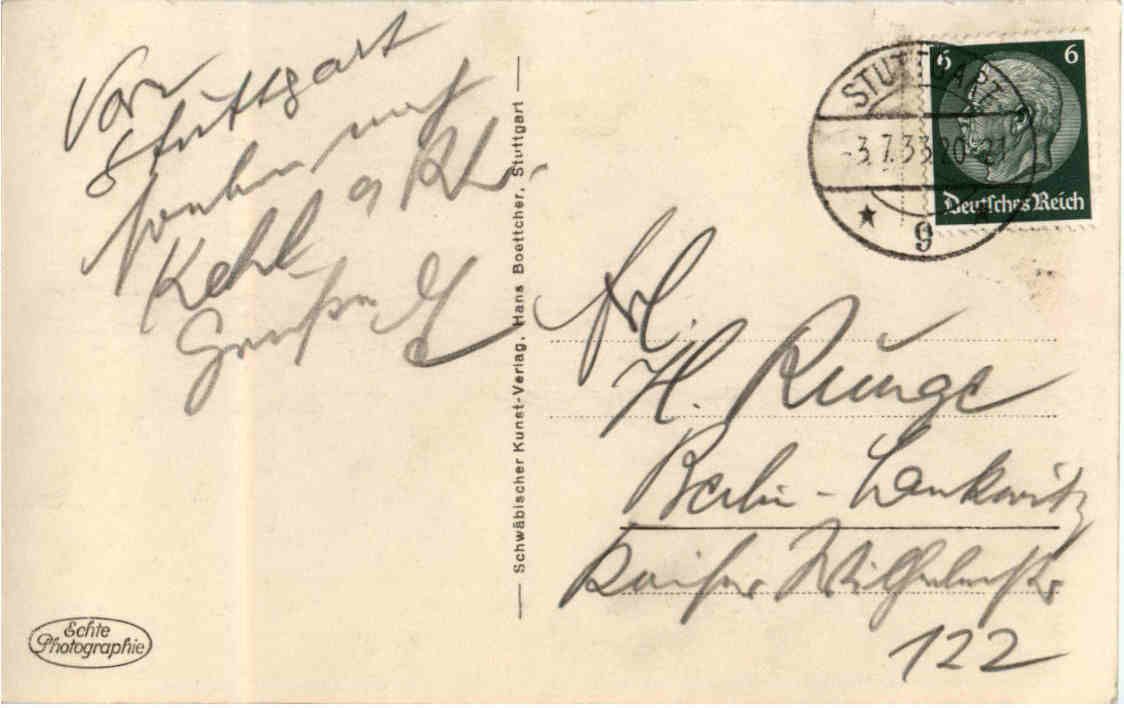 Von
Stuttgart
fahren nach
Kehl a Rh.
Grüße
Frl.
H. Runge
Berlin-Lankwitz
Kaiser Wilhelmstr
122
Schwäbischer Kunst-Verlag, Hans Boettcher, Stuttgart
Echte
Photographie
STUTTGART
-3.7.33.20-21
9
6 6
Deutsches Reich